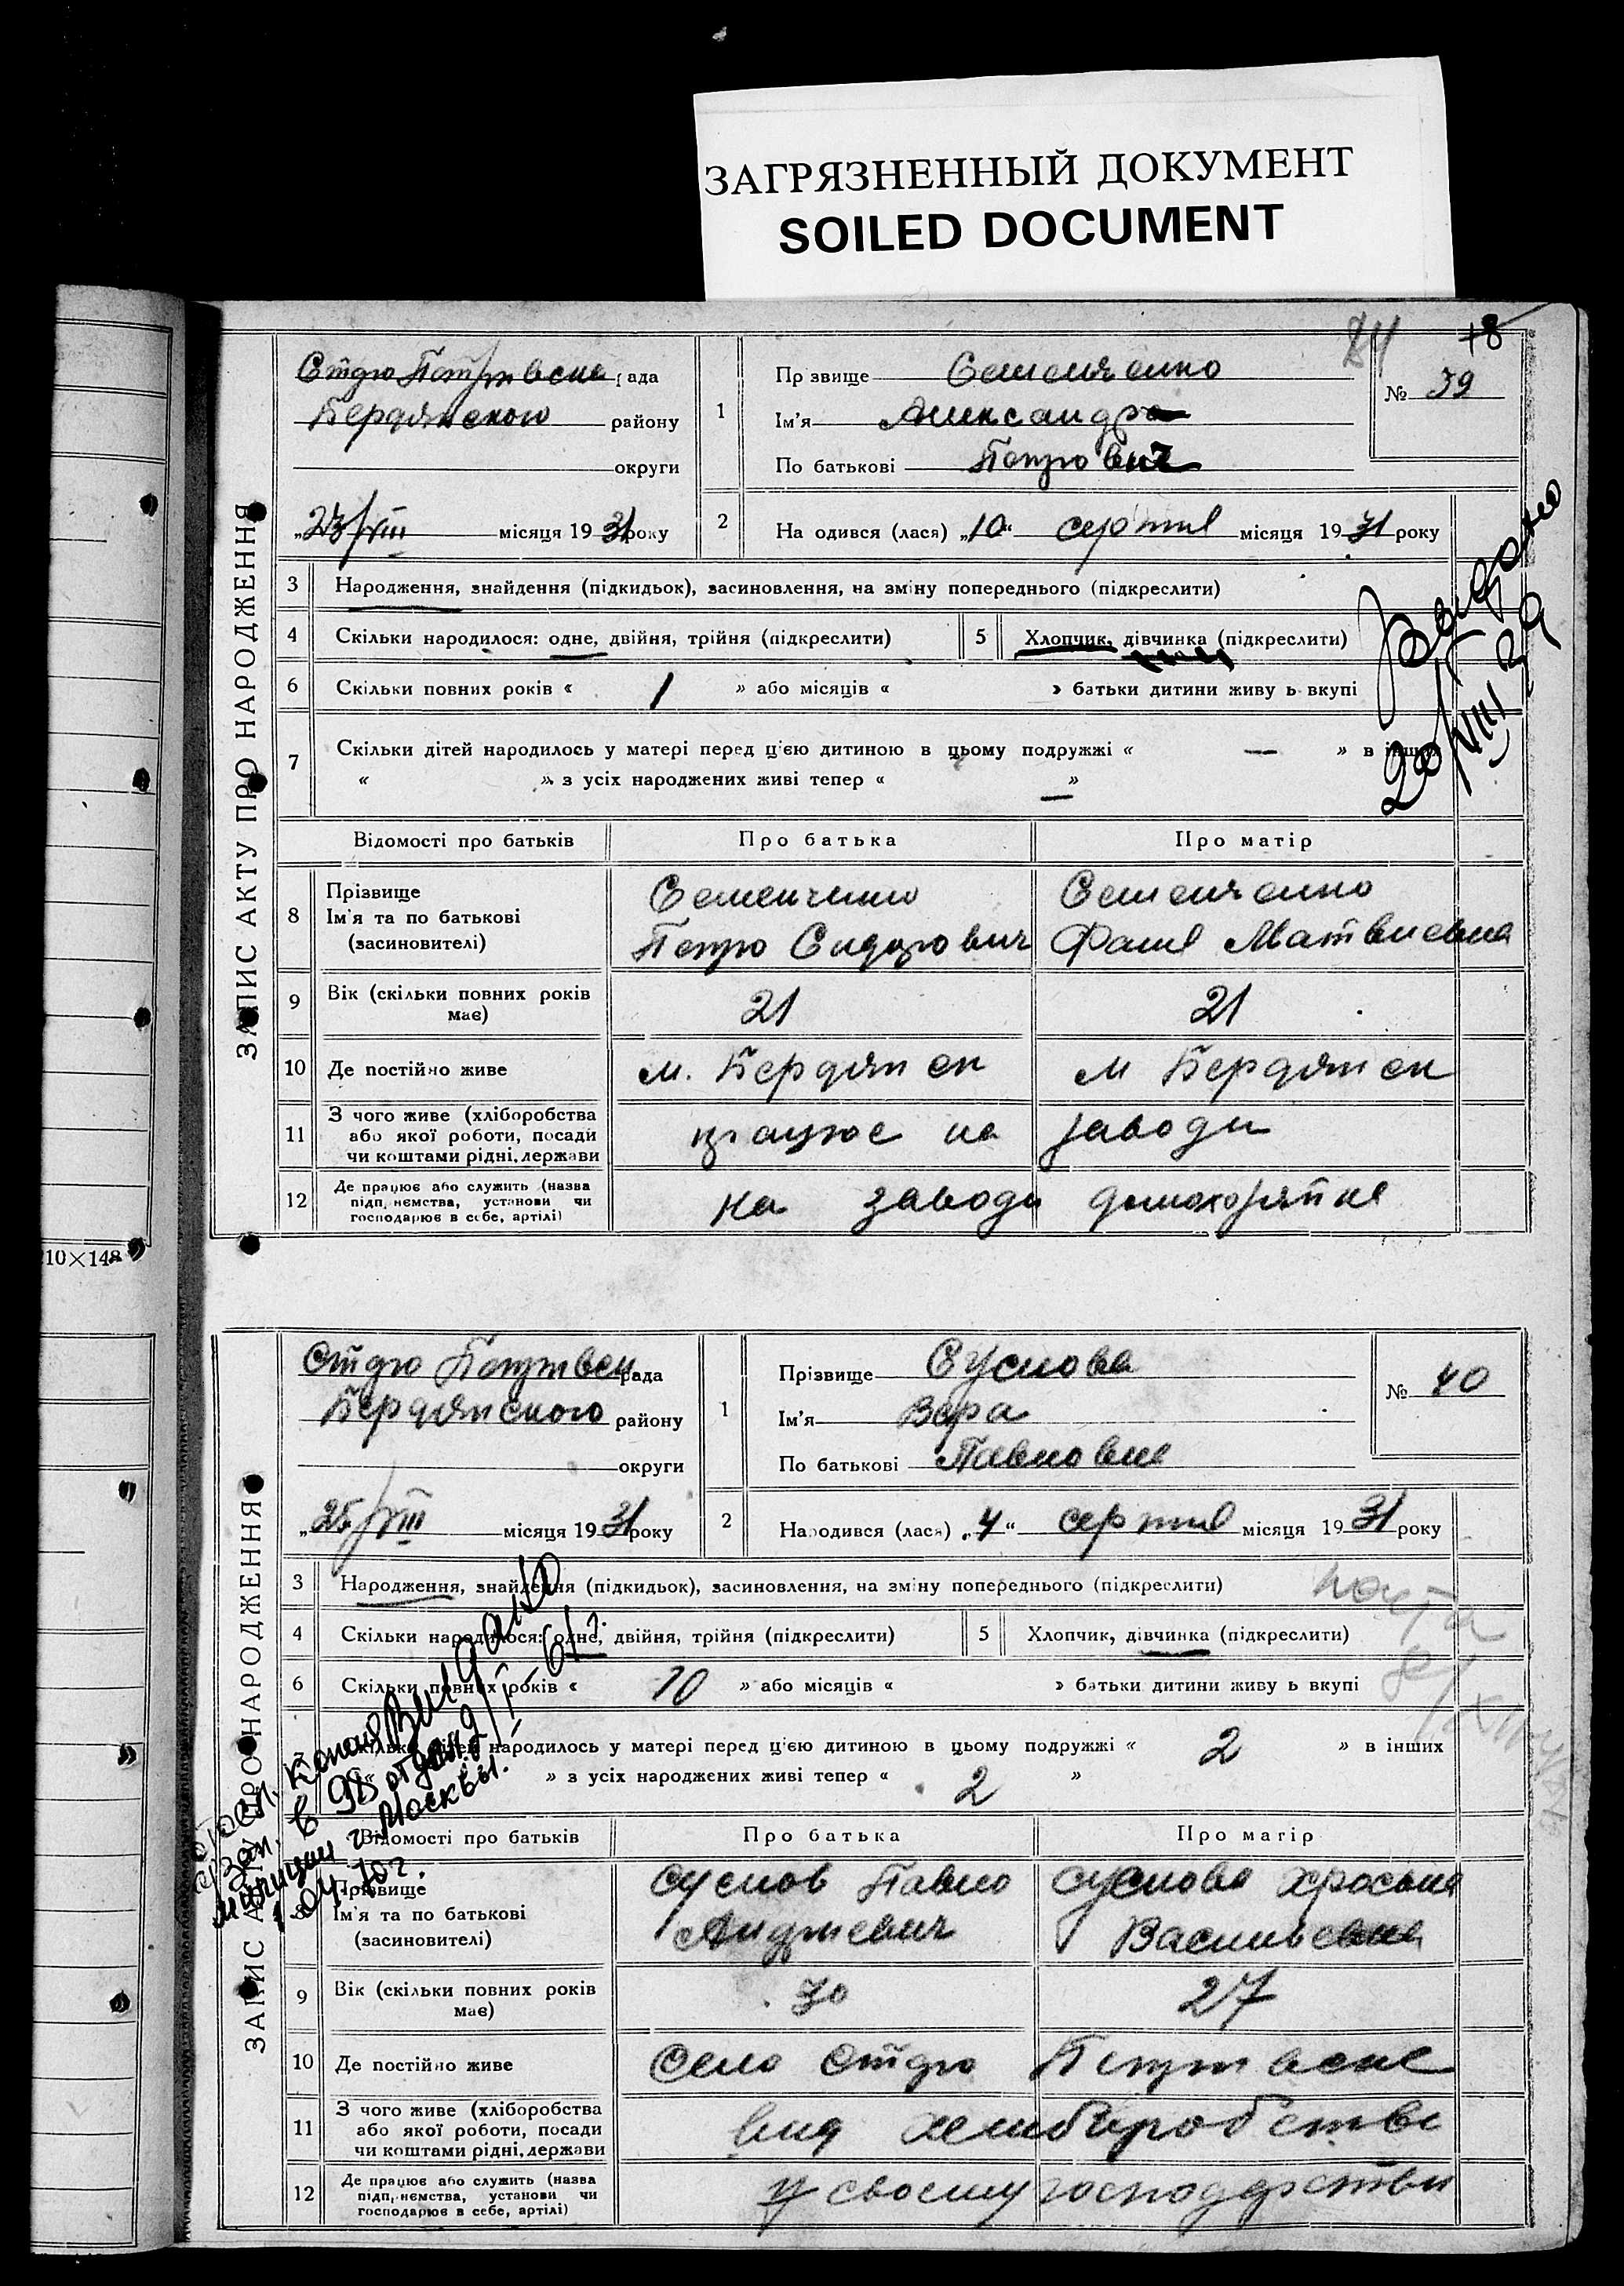 ЗАГРЯЗНЕННЫЙ ДОКУМЕНТ
SOILED DOCUMENT
ЗАПИС АКТУ ПРО НАРОДЖЕННЯ
рада
Бердянского району
округи
„23/VIII місяця 1931року
1
Прізвище Семенченко
Ім'я Александр
По батькові Петрович
+8
№ 39
2
Народився (лася) „10“ серпня місяця 1931 року
3 Народження, знайдення (підкидьок), засиновлення, на зміну попереднього (підкреслити)
4 Скільки народилося: одне, двійня, трійня (підкреслити)
5 Хлопчик, дівчинка (підкреслити)
6 Скільки повних років « 1 » або місяців « » батьки дитини живуть вкупі
7 Скільки дітей народилось у матері перед ц'єю дитиною в цьому подружжі « — » в інших
« » з усіх народжених живі тепер « — »
20/VIII 39
Відомості про батьків Про батька Про матір
8 Прізвище
Ім'я та по батькові
(засиновителі)
Семенченко
Петро Сидорович
Семенченко
Матвиевна
9 Вік (скільки повних років має) 21 21
10 Де постійно живе м. Бердянск м Бердянск
11 З чого живе (хліборобства
або якої роботи, посади
чи коштами рідні, держави
працює на заводи
12 Де працює або служить (назва
підприємства, установи чи
господарює в себе, артілі)
на заводи домохозяйка
10×148
ЗАПИС АКТУ ПРО НАРОДЖЕННЯ
рада
Бердянского району
округи
„25/VIII місяця 1931року
1
Прізвище Суслова
Ім'я Вера
По батькові Павловна
№ 40
2
Народився (лася) „4“ серпня місяця 1931 року
3 Народження, знайдення (підкидьок), засиновлення, на зміну попереднього (підкреслити)
4 Скільки народилося: одне, двійня, трійня (підкреслити)
5 Хлопчик, дівчинка (підкреслити)
6 Скільки повних років « 10 » або місяців « » батьки дитини живуть вкупі
7 Скільки дітей народилось у матері перед ц'єю дитиною в цьому подружжі « 2 » в інших
« » з усіх народжених живі тепер « 2 »
копия
в 95 отдел.
милиции г. Москвы.
Відомості про батьків Про батька Про матір
8 Прізвище
Ім'я та по батькові
(засиновителі)
Суслов Павло
Андреевич
Суслова
Васильевна
9 Вік (скільки повних років має) 30 27
10 Де постійно живе Село
11 З чого живе (хліборобства
або якої роботи, посади
чи коштами рідні, держави
вид хлиборобства
12 Де працює або служить (назва
підприємства, установи чи
господарює в себе, артілі)
у своему господарстви